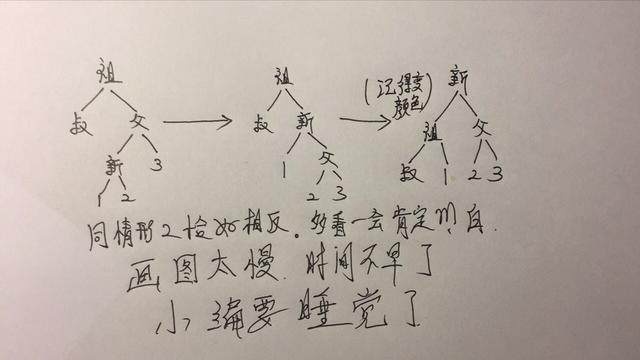 祖
叔 父
新 3
1 2
祖
叔 新
1 父
2 3
(记得变
颜色)
新
祖 父
叔 1 2 3
同情形2恰好相反。多看一会肯定明白.
画图太慢.时间不早了
小编要睡觉了